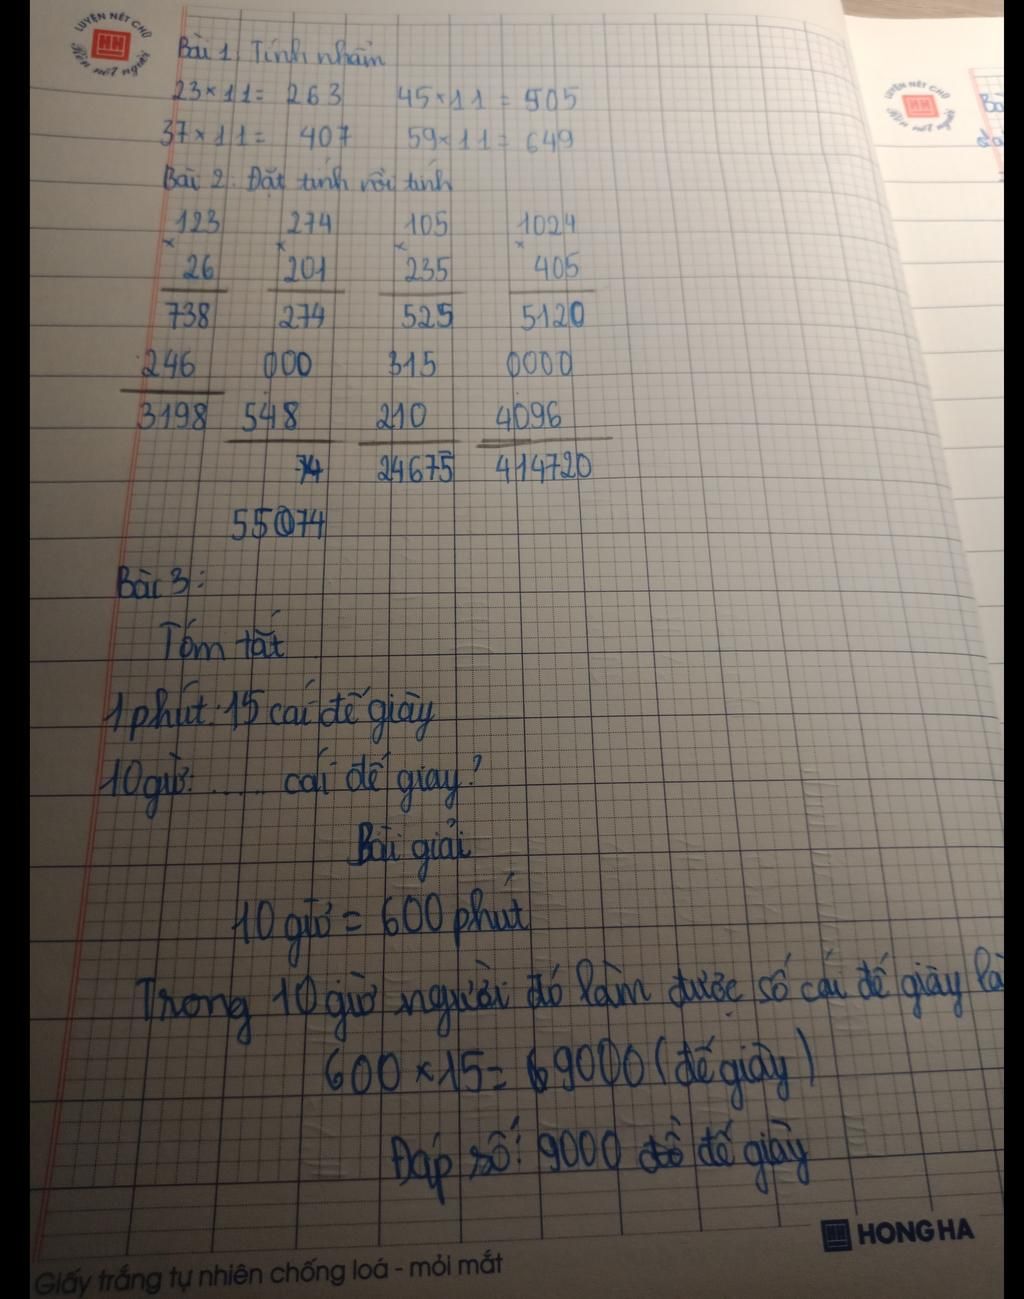 LUYỆN NÉT CHỮ
HH
Rèn nết người
Bài 1: Tính nhẩm
23 × 11 = 263 45 × 11 = 505
37 × 11 = 407 59 × 11 = 649
Bài 2: Đặt tính rồi tính
123 274 105 1024
× × × ×
26 201 235 405
738 274 525 5120
246 000 315 0000
3198 548 210 4096
24675 414720
55074
Bài 3:
Tóm tắt
1 phút: 15 cái đế giày
10 giờ: ..... cái đế giay?
Bài giải
10 giờ = 600 phút
Trong 10 giờ người đó làm được số cái đế giày là
600 × 15 = 9000 (đế giày)
Đáp số: 9000 đế giày
HONG HA
Giấy trắng tự nhiên chống loá - mỏi mắt
LUYỆN NÉT CHỮ
HH